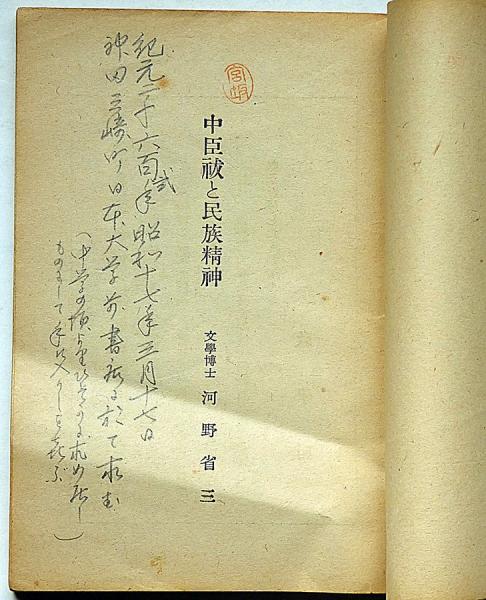 中臣祓と民族精神
文學博士 河野省三
紀元二千六百弐年 昭和十七年三月十七日
神田三崎町日本大学前書店に於て求む
(中学の頃より
ものにして手に入りしを喜ぶ